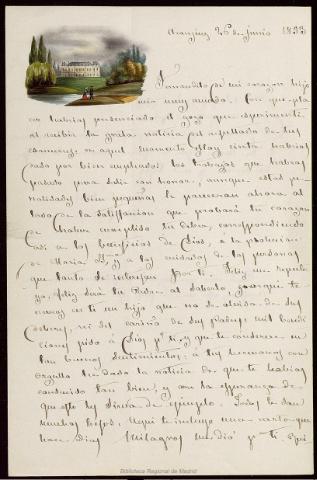 Aranjuez 26 de junio 1893
Fernandito de mi corazon hijo
mio muy amado. Con que pla
cer habria presenciado el gozo que esperimente
al recibir la grata noticia del resultado de tus
examenes, en aquel momento
dado por bien empleados los trabajos que habras
pasado para salir con honor, aunque estas pe
nalidades bien pequeñas te pareceran ahora al
lado de la satisfaccion que probará tu corazon
de haber cumplido tu deber, correspondiendo
asi a los beneficios de Dios, a la proteccion
de Maria y a los cuidados de las personas
que tanto se interesan por ti. Feliz
ya, feliz será tu Padre al saberlo, porque te
nemos en ti un hijo que no se olvida de sus
deberes, ni del cariño de sus padres mil bendi
ciones pido a Dios pª ti, y que te conserve en
tan buenos sentimientos; a tus hermanos con
orgullo he dado la noticia de que te habias
conducido tan bien, y con la esperanza de
que esto les sirva de ejemplo. Todos te dan
muchos besos. Aqui te incluyo una carta que
hace dias Milagros me dió pª ti.
Biblioteca Regional de Madrid